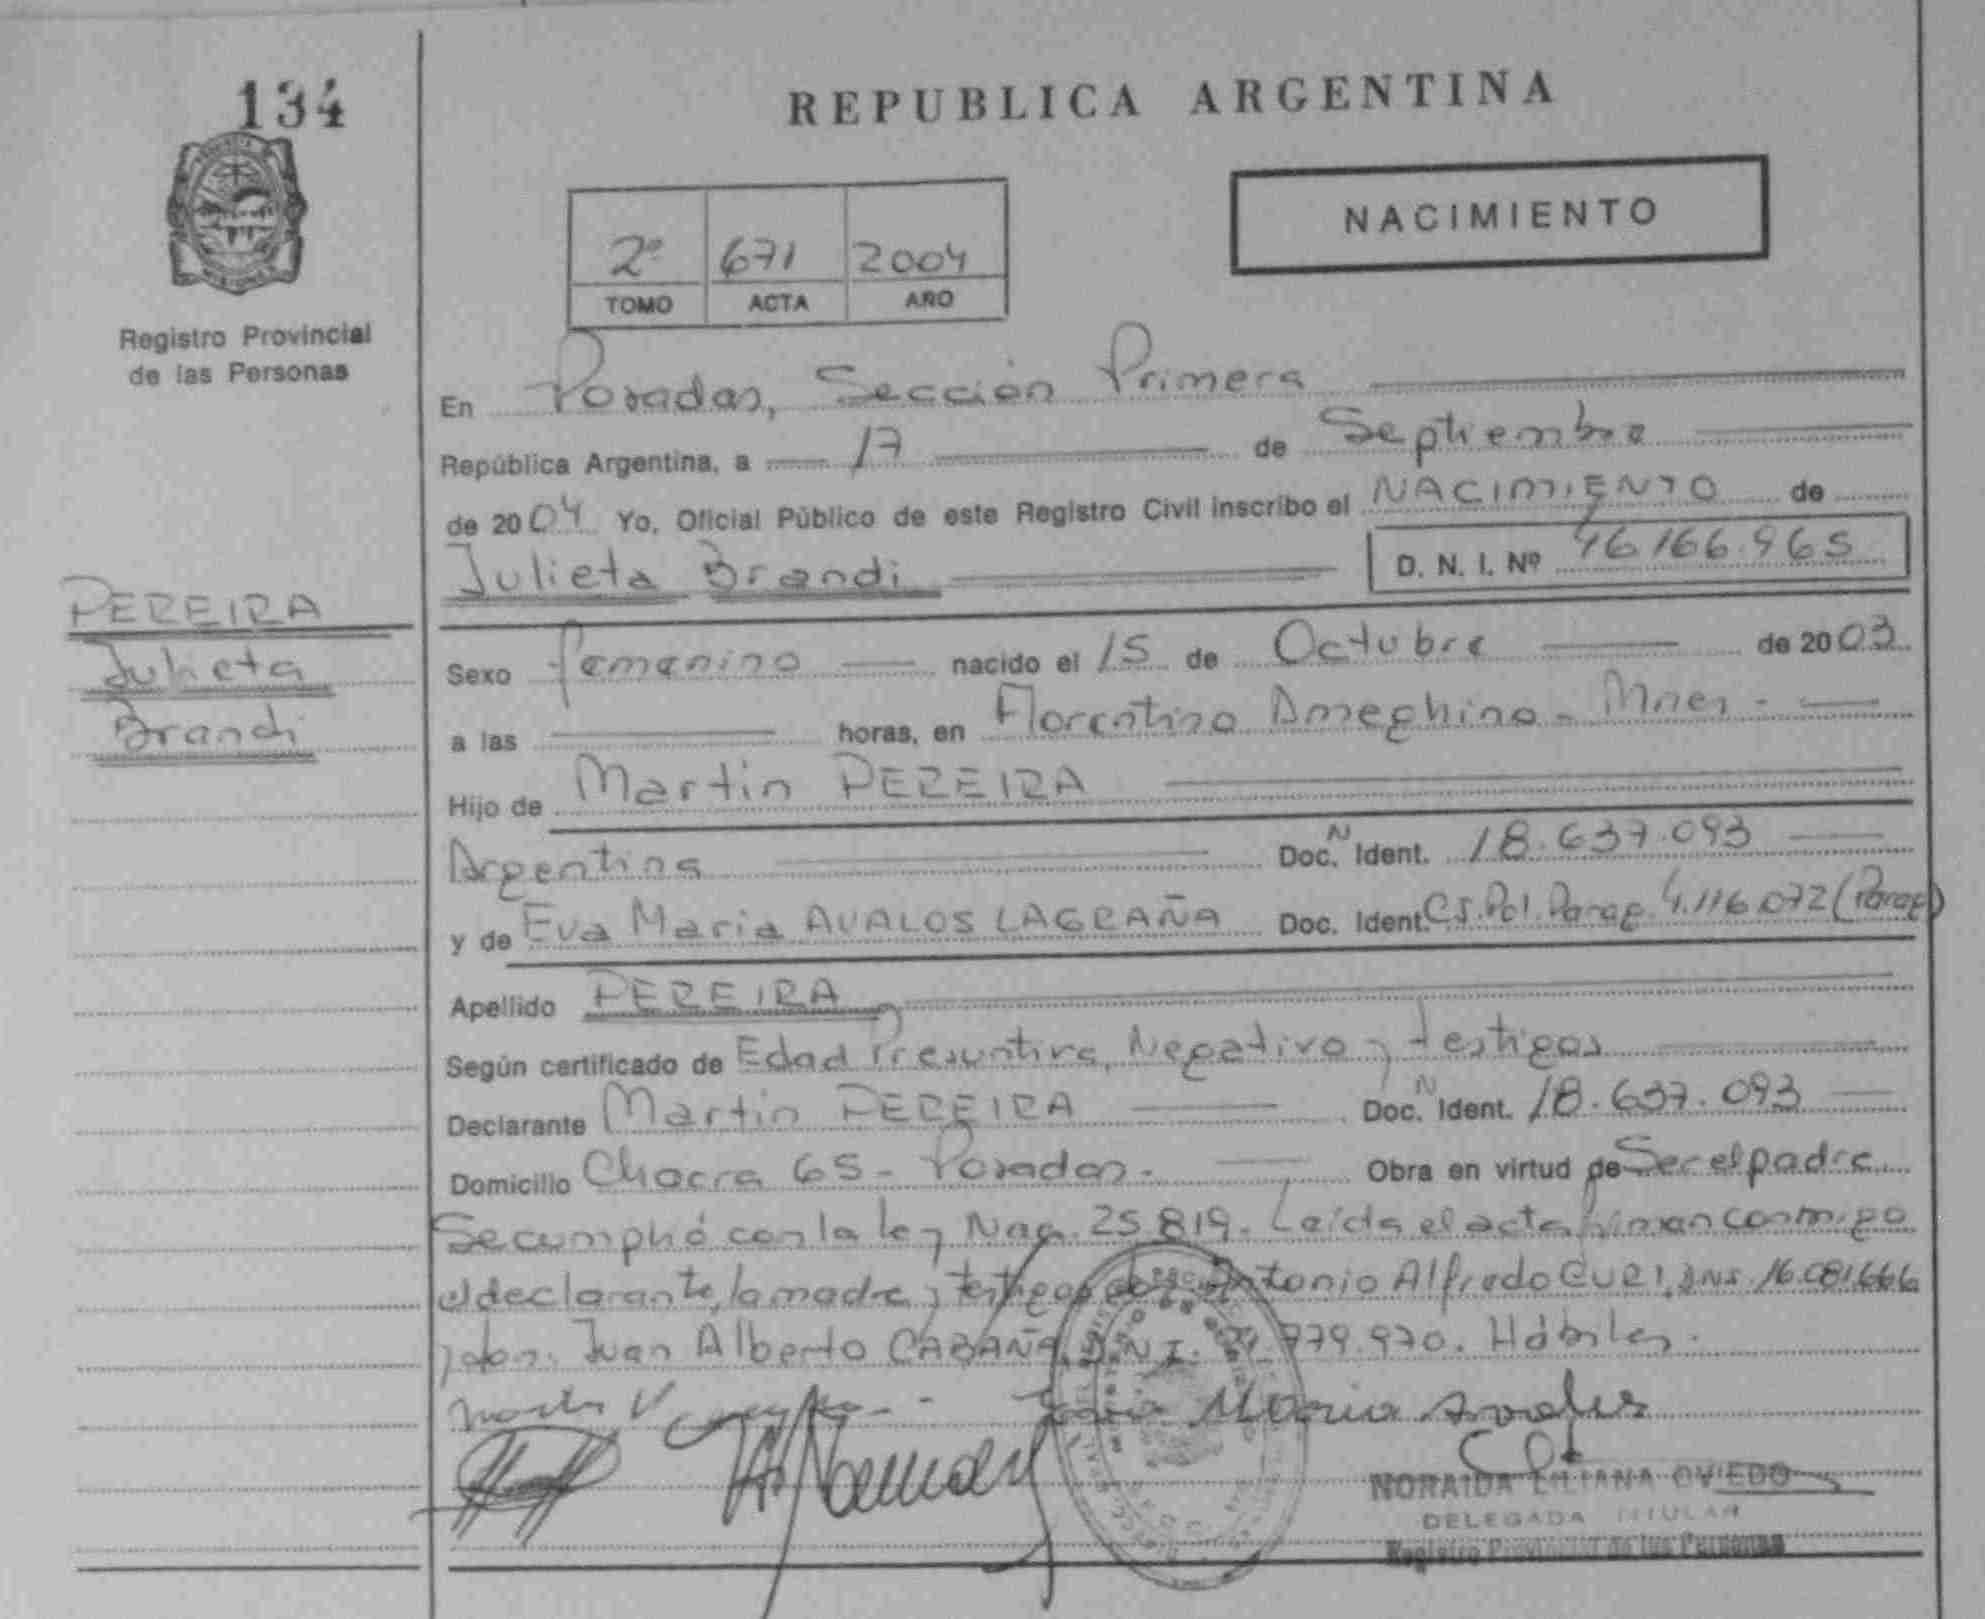 134
REPUBLICA ARGENTINA
NACIMIENTO
2º 671 2004
TOMO ACTA AÑO
Registro Provincial
de las Personas
En Posadas, Sección Primera
República Argentina, a 17 de Septiembre
de 2004 Yo, Oficial Público de este Registro Civil inscribo el NACIMIENTO de
Julieta Brandi D. N. I. Nº 46.166.965
PEREIRA
Julieta
Brandi
Sexo femenino nacido el 15 de Octubre de 2003
a las horas, en Florentino Ameghino - Mnes -
Hijo de Martin PEREIRA
Argentina Doc. N Ident. 18.637.093
y de Eva Maria AVALOS LAGRAÑA Doc. Ident. C.I. Pol. Parag. 4.116.072 (Parag)
Apellido PEREIRA
Según certificado de Edad Presuntiva, Negativo y testigos
Declarante Martin PEREIRA Doc. N Ident. 18.637.093
Domicilio Chacra 65 - Posadas. Obra en virtud de Ser el padre
Se cumplió con la ley Nac. 25.819. Leída el acta firman conmigo
el declarante, la madre y testigos Antonio Alfredo CURI DNI. 16.081.666
y don. Juan Alberto CABAÑA D.N.I. 779.970. Hábiles.
Maria Avalos
NORAIDA LILIANA OVIEDO
DELEGADA TITULAR
Registro Provincial de las Personas